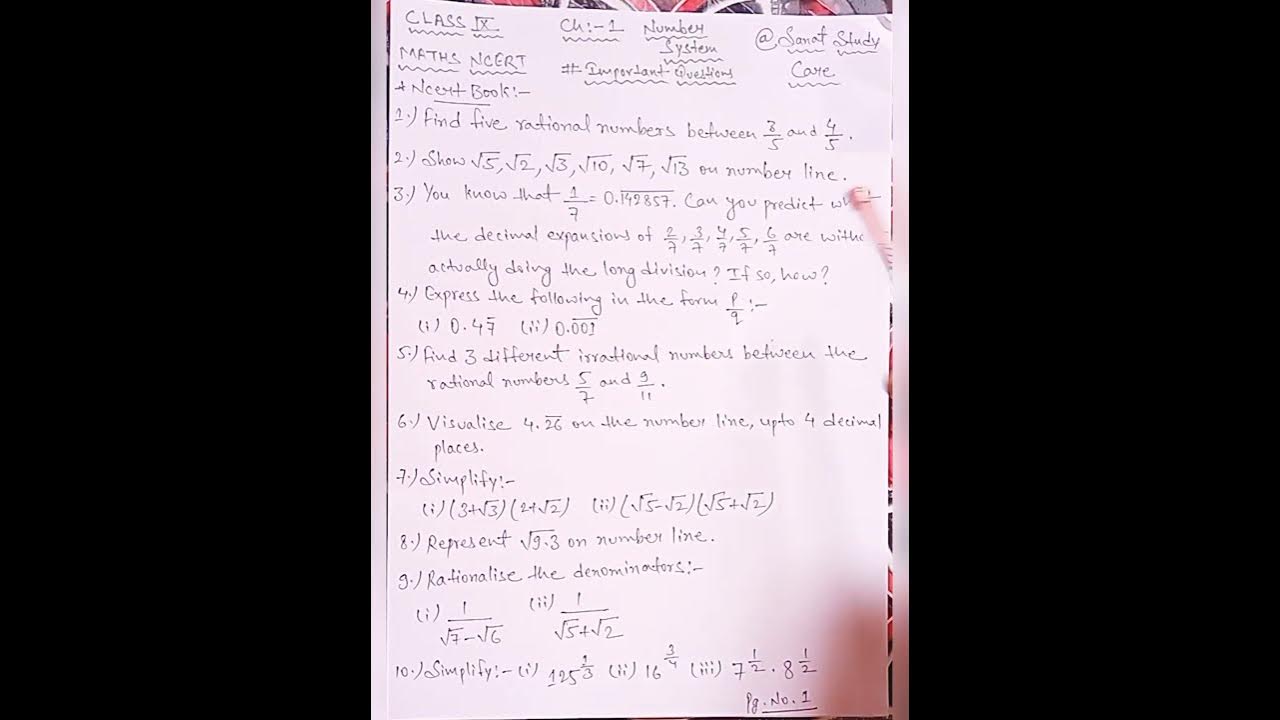 CLASS IX Ch:-1 Number System @ Sanat Study Care
MATHS NCERT # Important Questions
* Ncert Book:-
1.) Find five rational numbers between 3/5 and 4/5.
2.) Show √5, √2, √3, √10, √7, √13 on number line.
3.) You know that 1/7 = 0.1̅4̅2̅8̅5̅7̅. Can you predict
the decimal expansions of 2/7, 3/7, 4/7, 5/7, 6/7 are
actually doing the long division? If so, how?
4.) Express the following in the form p/q :-
(i) 0.47̅ (ii) 0.0̅0̅1̅
5.) Find 3 different irrational numbers between the
rational numbers 5/7 and 9/11.
6.) Visualise 4.2̅6̅ on the number line, upto 4 decimal
places.
7.) Simplify:-
(i) (3+√3)(2+√2) (ii) (√5-√2)(√5+√2)
8.) Represent √9.3 on number line.
9.) Rationalise the denominators:-
(i) 1/(√7-√6) (ii) 1/(√5+√2)
10.) Simplify:- (i) 125^(1/3) (ii) 16^(3/4) (iii) 7^(1/2) . 8^(1/2)
Pg. No. 1